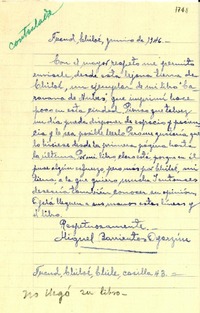 1743
contestada
Ancud, Chiloé, junio de 1946.-
Con el mayor respeto me permito
enviarle desde esta lejana tierra de
Chiloé, un ejemplar de mi libro "Ca-
ravana de Nubes" que imprimí hace
poco en esta ciudad. Pienso que tal vez al-
gún día pueda disponer de espacio y pacien-
cia y le sea posible leerlo. Pero me gustaría que
lo hiciese desde la primera página hasta
la última. Por mi libro claro está, porque en él
puse algún esfuerzo, pero más por Chiloé, mi
tierra, a la que quiero mucho. Entonces
desearía también conocer su opinión.
Ojalá lleguen a sus manos estas líneas y
el libro.
Respetuosamente.
Miguel Barrientos
Ancud, Chiloé, Chile, casilla 43.-
No llegó su libro-